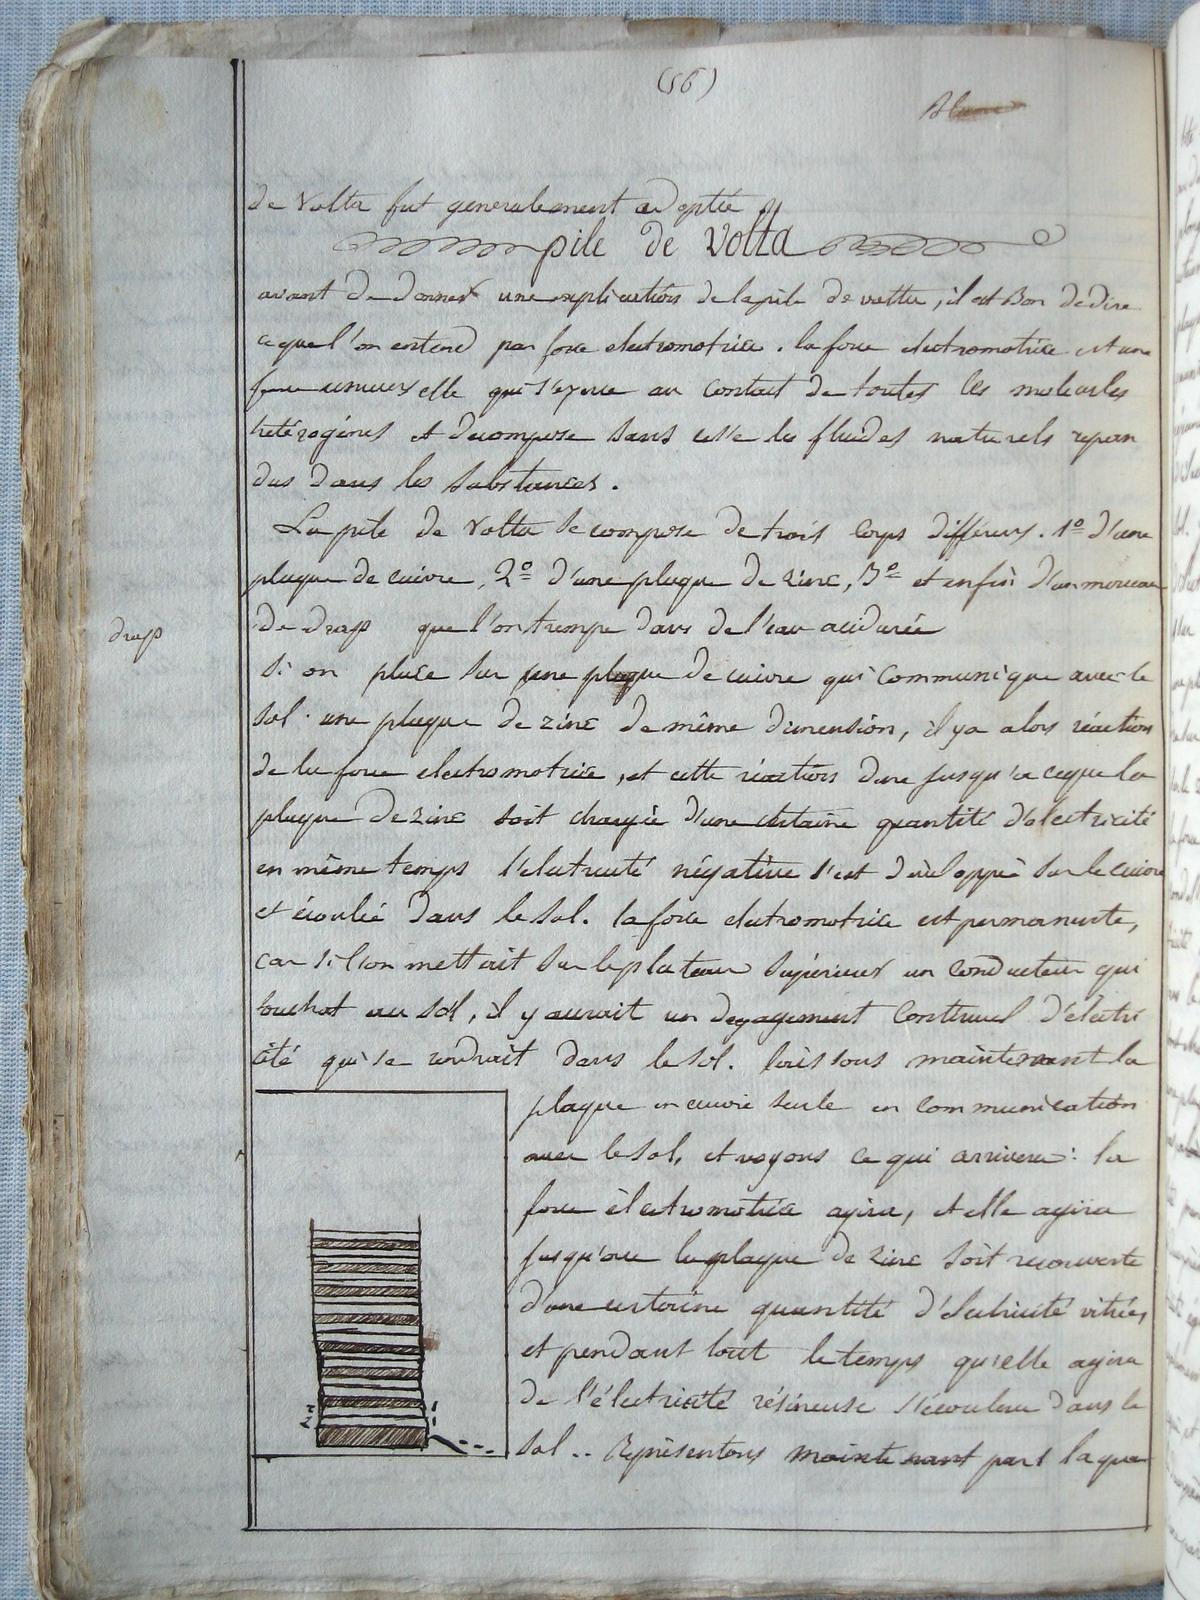 (56)
de Volta fut generalement adoptée
pile de Volta
avant de donner une explication de la pile de volta, il est Bon de dire
ce que l'on entend par force electromotrice. la force electromotrice est une
force universelle qui s'exerce au contact de toutes les molecules
hetérogénes et decompose sans cesse les fluides naturels repan
dus dans les substances.
La pile de Volta se compose de trois corps différens. 1º d'une
plaque de cuivre, 2º d'une plaque de zinc, 3º et enfin d'un morceau
drap
de drap que l'on trempe dans de l'eau acidurée
Si on place sur une plaque de cuivre qui communique avec le
sol une plaque de zinc de même dimension, il y a alors réaction
de la force electromotrice, et cette réaction dure jusqu'a ce que la
plaque de zinc soit chargée d'une certaine quantité d'electricité
en même temps l'electricité négative s'est développé sur le cuivre
et écoulée dans le sol. la force electromotrice est permanente,
car si l'on mettait sur le plateau supérieur un conducteur qui
touchat au sol, il y aurait un degagement continuel d'électri
cité qui se rendrait dans le sol. laissons maintenant la
plaque en cuivre seule en communication
avec le sol, et voyons ce qui arrivera : la
force électromotrice agira, et elle agira
jusqu'a ce que la plaque de zinc soit recouverte
d'une certaine quantité d'électricité vitrée,
et pendant tout le temps qu'elle agira
de l'électricité résineuse s'écoulera dans le
sol .. Représentons maintenant par 1 la quan